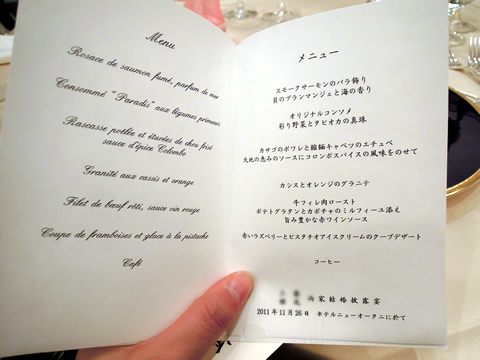 Menu
Rosace de saumon fumé, parfum de mer
Consommé "Paradis" aux légumes primeurs
Rascasse poêlée et étuvées de chou frisé
sauce d'épice Colombo
Granité aux cassis et orange
Filet de bœuf rôti, sauce vin rouge
Coupe de framboises et glace à la pistache
Café
メニュー
スモークサーモンのバラ飾り
貝のブランマンジェと海の香り
オリジナルコンソメ
彩り野菜とタピオカの真珠
カサゴのポワレと縮緬キャベツのエチュベ
大地の恵みのソースにコロンボスパイスの風味をのせて
カシスとオレンジのグラニテ
牛フィレ肉ロースト
ポテトグラタンとカボチャのミルフィーユ添え
旨み豊かな赤ワインソース
赤いラズベリーとピスタチオアイスクリームのクープデザート
コーヒー
両家結婚披露宴
2011年11月26日 ホテルニューオータニに於て